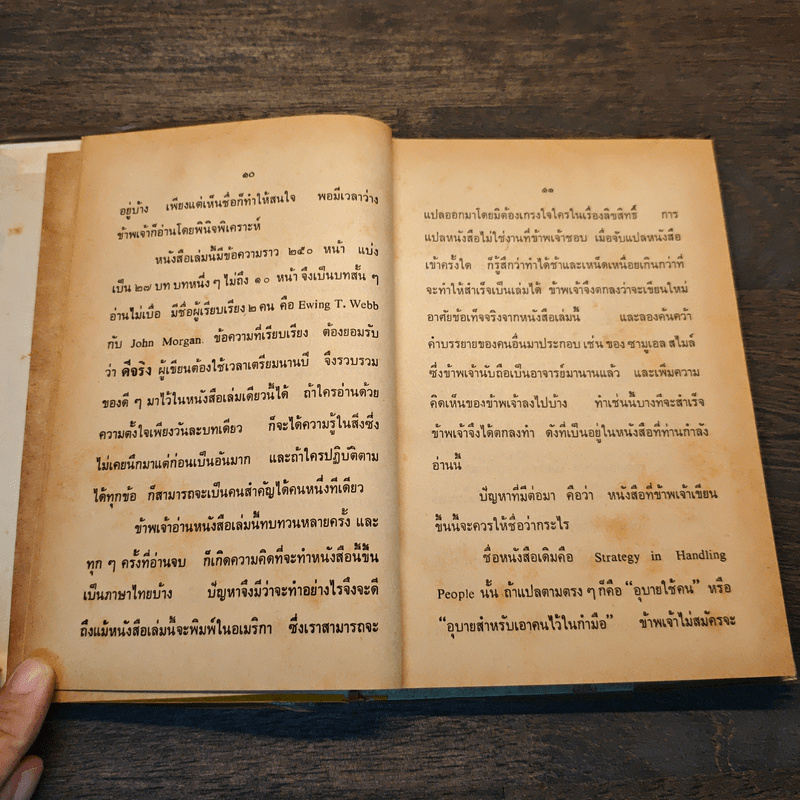 ๑๐
อยู่บ้าง เพียงแต่เห็นชื่อก็ทำให้สนใจ พอมีเวลาว่าง
ข้าพเจ้าก็อ่านโดยพินิจพิเคราะห์
หนังสือเล่มนี้มีข้อความราว ๒๕๐ หน้า แบ่ง
เป็น ๒๗ บท บทหนึ่ง ๆ ไม่ถึง ๑๐ หน้า จึงเป็นบทสั้น ๆ
อ่านไม่เบื่อ มีชื่อผู้เรียบเรียง ๒ คน คือ Ewing T. Webb
กับ John Morgan. ข้อความที่เรียบเรียง ต้องยอมรับ
ว่า ดีจริง ผู้เขียนต้องใช้เวลาเตรียมนานปี จึงรวบรวม
ของดี ๆ มาไว้ในหนังสือเล่มเดียวนี้ได้ ถ้าใครอ่านด้วย
ความตั้งใจเพียงวันละบทเดียว ก็จะได้ความรู้ในสิ่งซึ่ง
ไม่เคยนึกมาแต่ก่อนเป็นอันมาก และถ้าใครปฏิบัติตาม
ได้ทุกข้อ ก็สามารถจะเป็นคนสำคัญได้คนหนึ่งทีเดียว
ข้าพเจ้าอ่านหนังสือเล่มนี้ทบทวนหลายครั้ง และ
ทุก ๆ ครั้งที่อ่านจบ ก็เกิดความคิดที่จะทำหนังสือนี้ขึ้น
เป็นภาษาไทยบ้าง ปัญหาจึงมีว่าจะทำอย่างไรจึงจะดี
ถึงแม้หนังสือเล่มนี้จะพิมพ์ในอเมริกา ซึ่งเราสามารถจะ
๑๑
แปลออกมาโดยมิต้องเกรงใจใครในเรื่องลิขสิทธิ์ การ
แปลหนังสือไม่ใช่งานที่ข้าพเจ้าชอบ เมื่อจับแปลหนังสือ
เข้าครั้งใด ก็รู้สึกว่าทำได้ช้าและเหน็ดเหนื่อยเกินกว่าที่
จะทำให้สำเร็จเป็นเล่มได้ ข้าพเจ้าจึงตกลงว่าจะเขียนใหม่
อาศัยข้อเท็จจริงจากหนังสือเล่มนี้ และลองค้นคว้า
คำบรรยายของคนอื่นมาประกอบ เช่น ของ ซามูเอล สไมล์
ซึ่งข้าพเจ้านับถือเป็นอาจารย์มานานแล้ว และเพิ่มความ
คิดเห็นของข้าพเจ้าลงไปบ้าง ทำเช่นนี้บางทีจะสำเร็จ
ข้าพเจ้าจึงได้ตกลงทำ ดังที่เป็นอยู่ในหนังสือที่ท่านกำลัง
อ่านนี้
ปัญหาที่มีต่อมา คือว่า หนังสือที่ข้าพเจ้าเขียน
ขึ้นนี้จะควรให้ชื่อว่ากระไร
ชื่อหนังสือเดิมคือ Strategy in Handling
People นั้น ถ้าแปลตามตรง ๆ ก็คือ “อุบายใช้คน” หรือ
“อุบายสำหรับเอาคนไว้ในกำมือ” ข้าพเจ้าไม่สมัครจะ